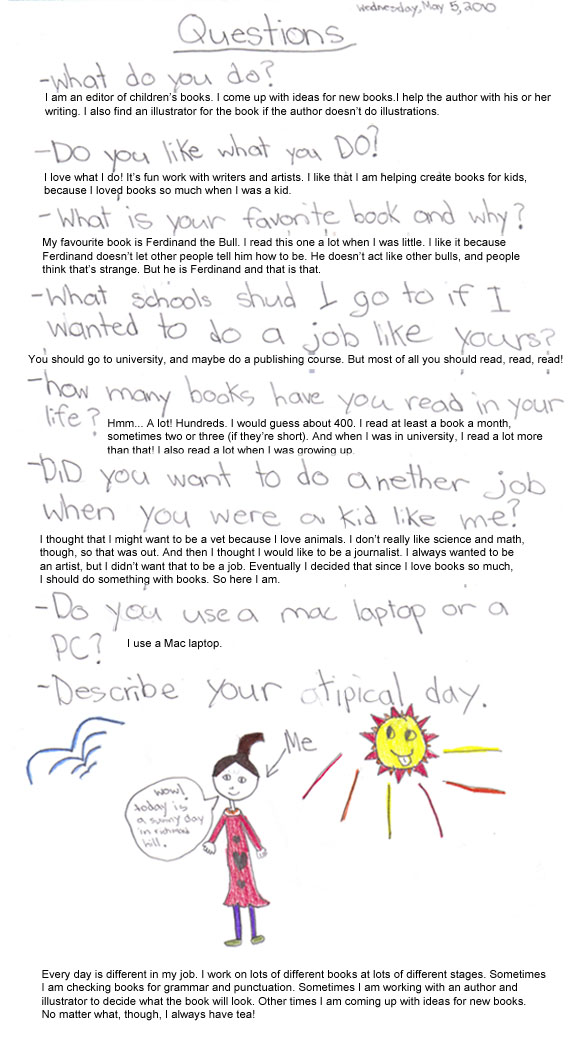 Wednesday, May 5, 2010
Questions
-What do you do?
I am an editor of children's books. I come up with ideas for new books.I help the author with his or her
writing. I also find an illustrator for the book if the author doesn't do illustrations.
-Do you like what you DO?
I love what I do! It's fun work with writers and artists. I like that I am helping create books for kids,
because I loved books so much when I was a kid.
-What is your favorite book and why?
My favourite book is Ferdinand the Bull. I read this one a lot when I was little. I like it because
Ferdinand doesn't let other people tell him how to be. He doesn't act like other bulls, and people
think that's strange. But he is Ferdinand and that is that.
-What schools shud I go to if I
wanted to do a job like yours?
You should go to university, and maybe do a publishing course. But most of all you should read, read, read!
-how many books have you read in your
life?
Hmm... A lot! Hundreds. I would guess about 400. I read at least a book a month,
sometimes two or three (if they're short). And when I was in university, I read a lot more
than that! I also read a lot when I was growing up.
-DiD you want to do anether job
when you were a kid like me?
I thought that I might want to be a vet because I love animals. I don't really like science and math,
though, so that was out. And then I thought I would like to be a journalist. I always wanted to be
an artist, but I didn't want that to be a job. Eventually I decided that since I love books so much,
I should do something with books. So here I am.
-Do you use a mac laptop or a
PC?
I use a Mac laptop.
-Describe your atipical day.
Me
wow!
today is
a sunny day
in richmond
hill.
Every day is different in my job. I work on lots of different books at lots of different stages. Sometimes
I am checking books for grammar and punctuation. Sometimes I am working with an author and
illustrator to decide what the book will look. Other times I am coming up with ideas for new books.
No matter what, though, I always have tea!